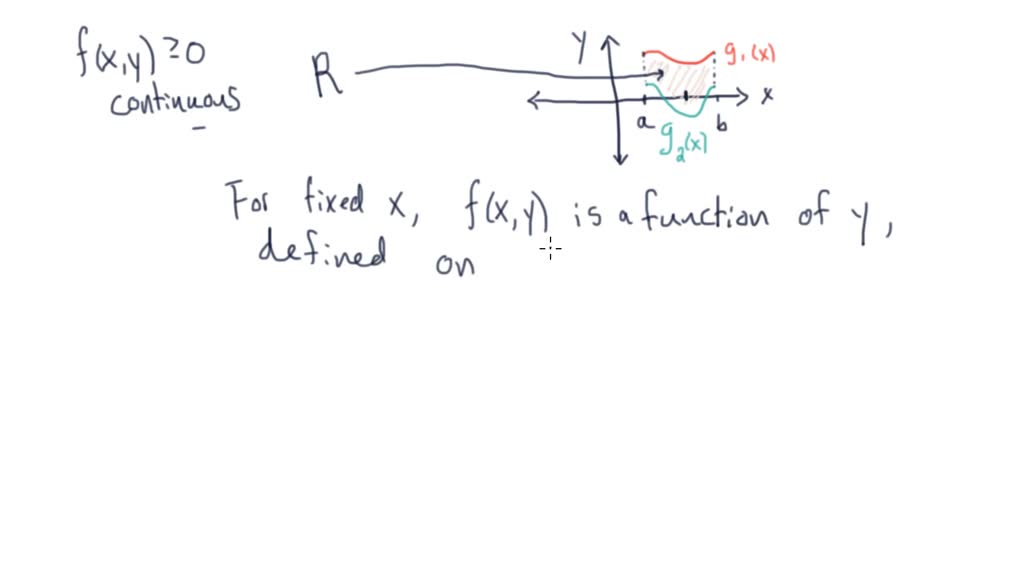 f(x,y) ≥ 0
continuous
R
y
g₁(x)
x
a
b
g₂(x)
For fixed x, f(x,y) is a function of y,
defined on